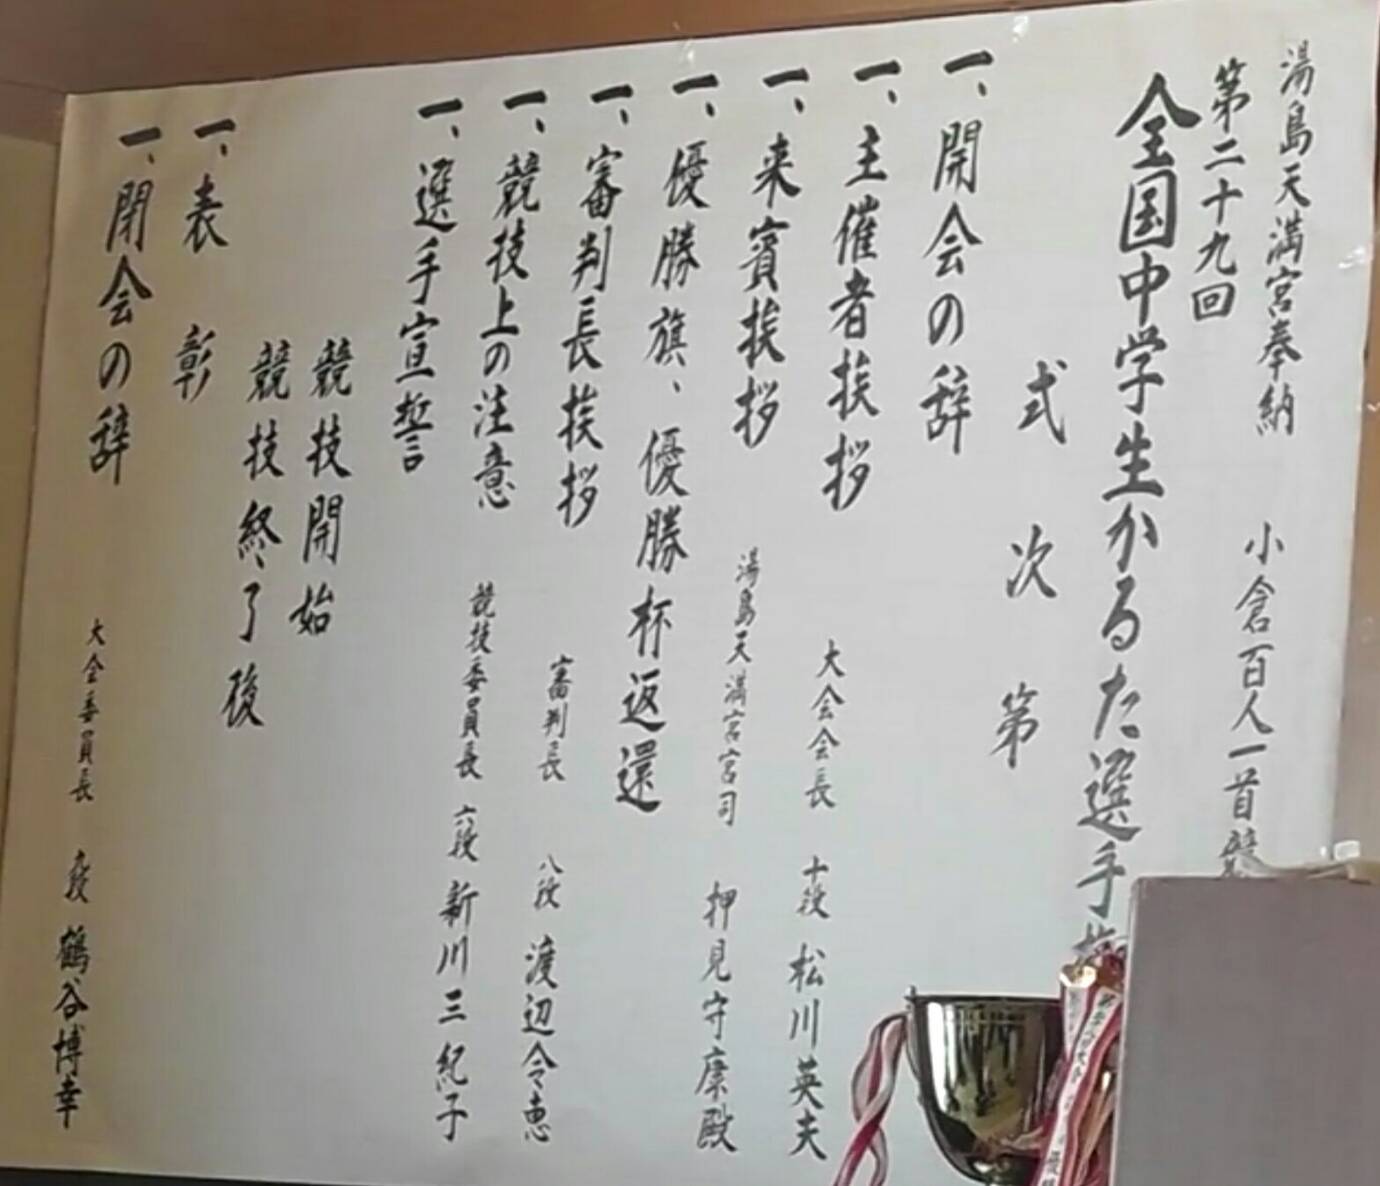 湯島天満宮奉納 小倉百人一首競
第二十九回
全国中学生かるた選手権
式次第
一、開会の辞
一、主催者挨拶 大会会長 十段 松川英夫
一、来賓挨拶 湯島天満宮宮司 押見守康殿
一、優勝旗、優勝杯返還
一、審判長挨拶 審判長 八段 渡辺令恵
一、競技上の注意 競技委員長 六段 新川三紀子
一、選手宣誓
競技開始
競技終了後
一、表彰
一、閉会の辞 大会委員長 九段 鶴谷博幸